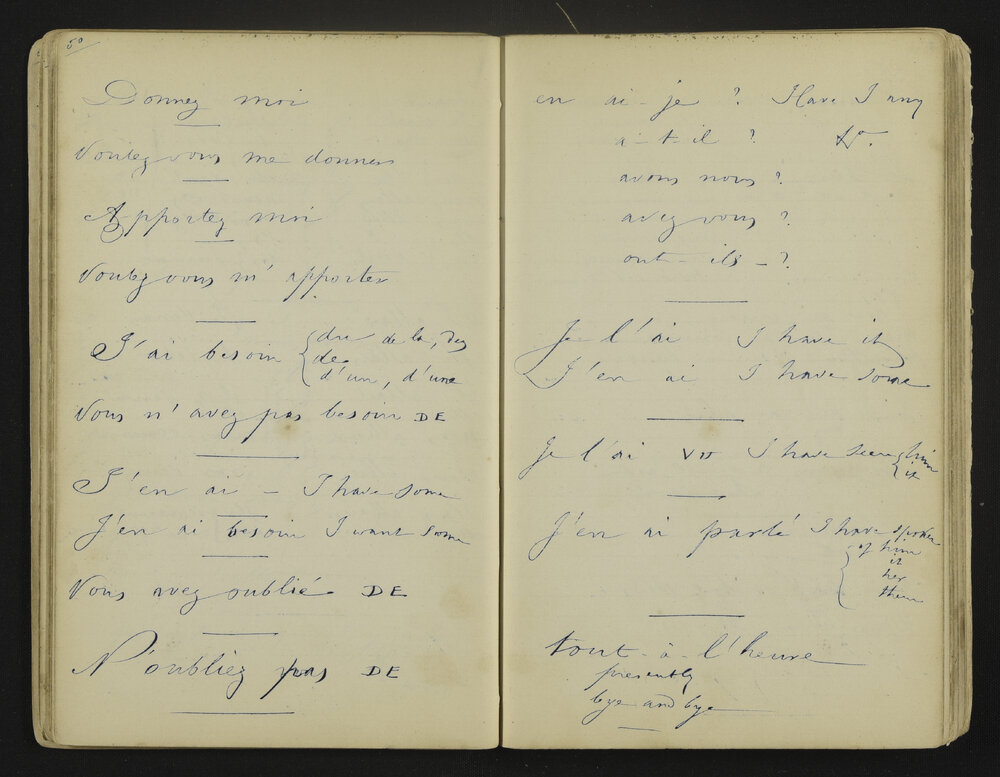 50
Donnez moi
Voulez vous me donner
Apportez moi
Voulez vous m' apporter
J'ai besoin { du de la, des
de
d'un, d'une
Vous n' avez pas besoin DE
J'en ai – I have some
J'en ai besoin I want some
Vous avez oublié DE
N'oubliez pas DE
en ai - je ? Have I any
a - t - il ? Do.
avons nous ?
avez vous ?
ont - ils - ?
Je l'ai I have it
J'en ai I have some
Je l'ai vu I have seen { him
it
J'en ai parlé I have spoken
{ of him
it
her
them
tout - à - l'heure
presently
bye and bye